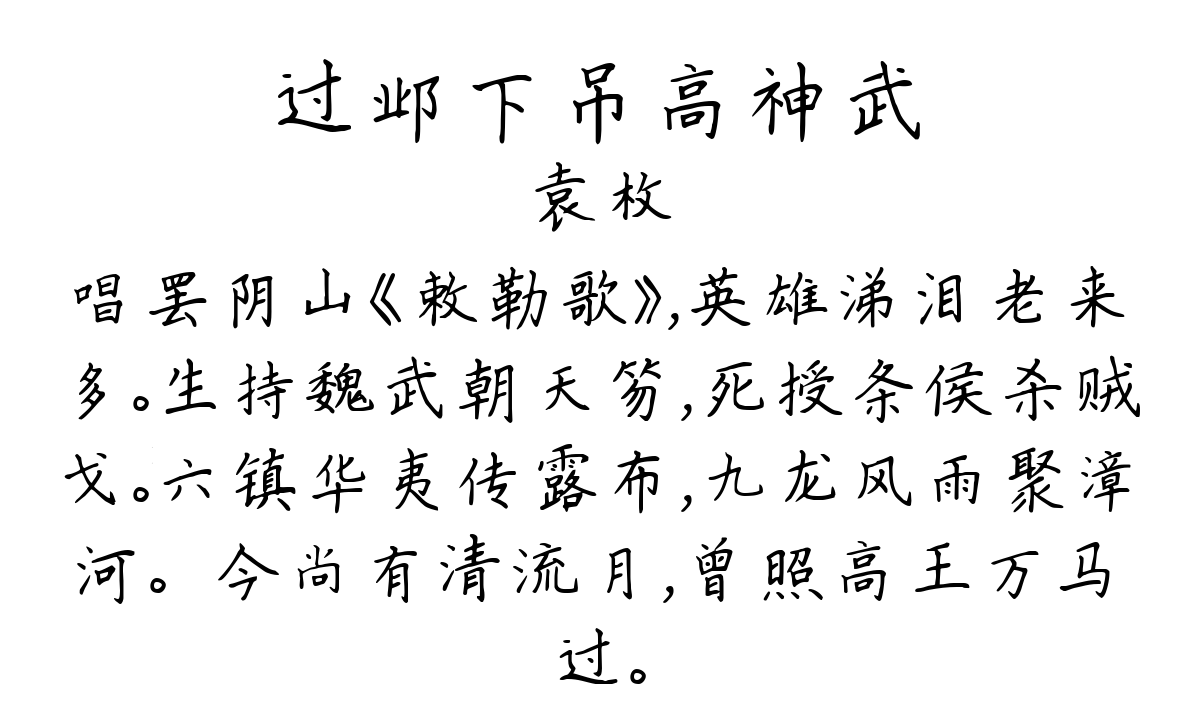 过邺下吊高神武
袁枚
唱罢阴山《敕勒歌》,英雄涕泪老来
多。生持魏武朝天笏,死授条侯杀贼
戈。六镇华夷传露布,九龙风雨聚漳
河。今尚有清流月,曾照高王万马
过。